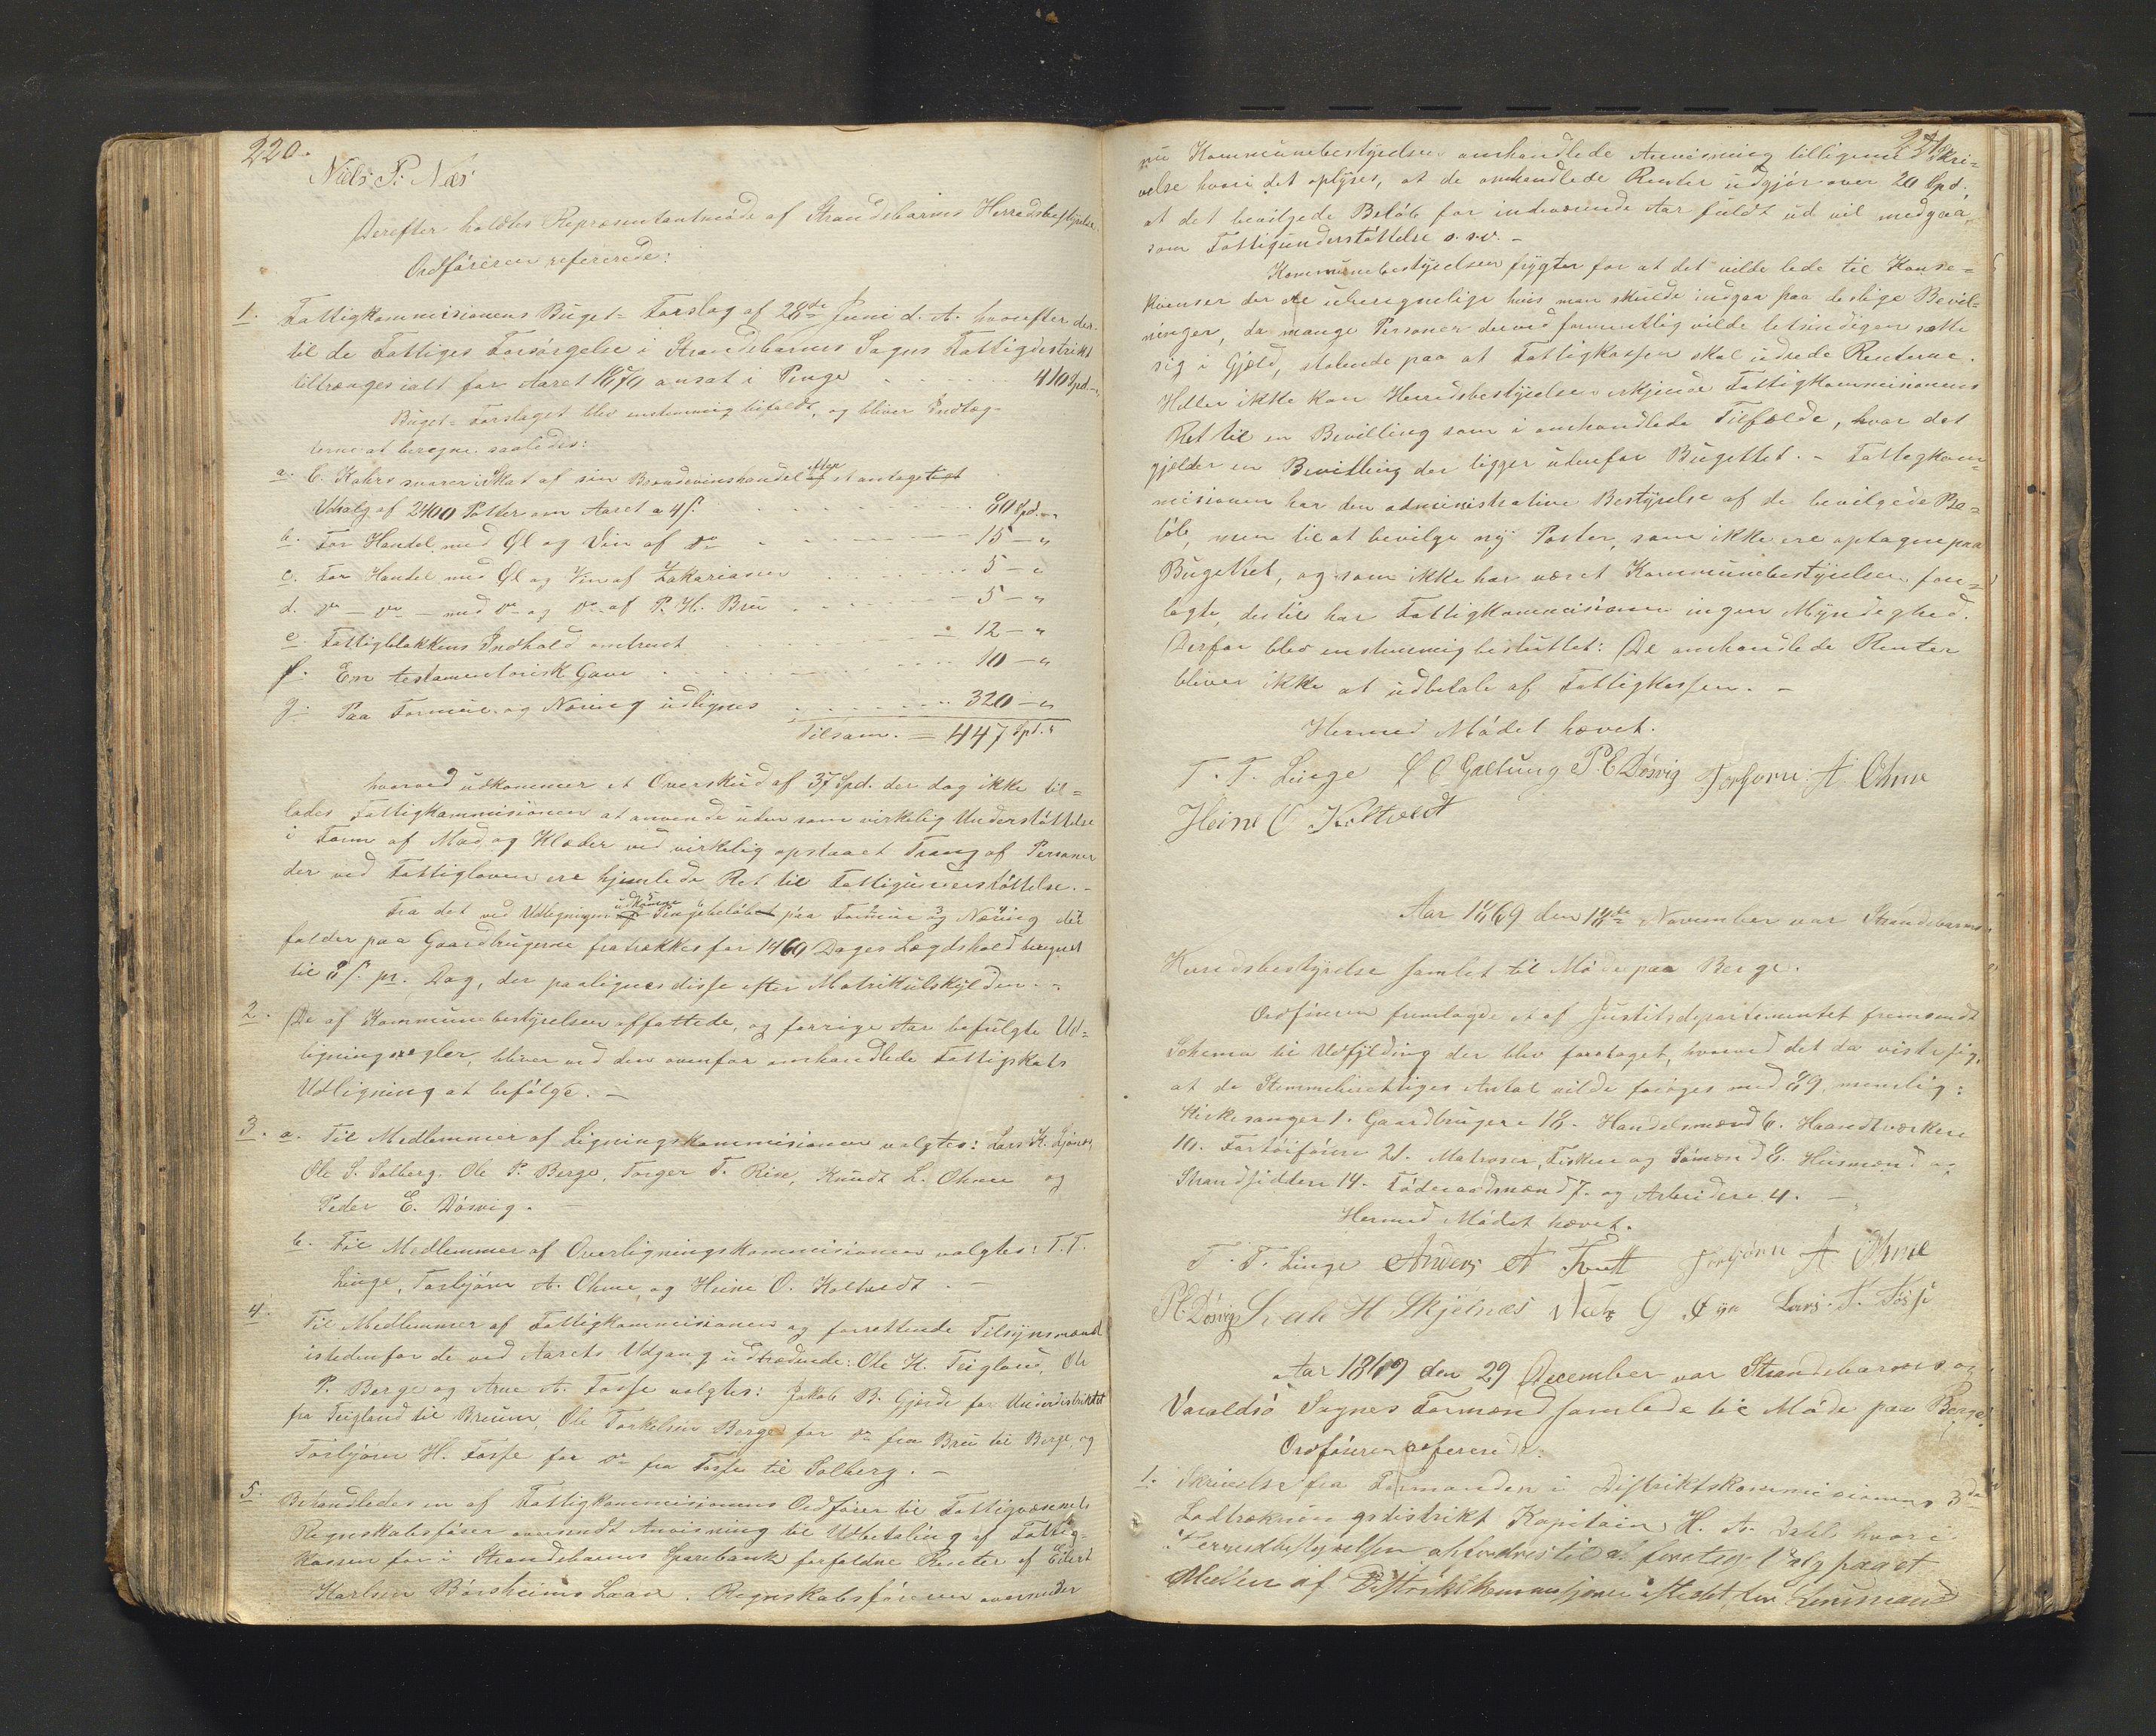 220.
Niels P. Næs
Derefter holdtes Repræsentantmøde af Strandebarms Herredsbestyrelse.
Ordføreren refererede:
1. Fattigkommisionens Buget-Forslag af 28de Juni d. A. hvorefter der
til de Fattiges Forsørgelse i Strandebarms Sogns Fattigdistrikt
tiltrænges ialt for Aaret 1870 ansat i Penge 410 Spd. „
Buget-Forslaget blev enstemmig bifaldt, og bliver Indtæg-
terne at beregne saaledes:
a. C. Kahrs svarer i Skat af sin Brændevinshandel efter et antaget
Udsalg af 2400 Potter om Aaret a 4 s. 80 Spd. „
b. For Handel med Øl og Vin af do 15 – „
c. For Handel med Øl og Vin af Zakariassen 5 – „
d. do – do – med do og do af P. H. Bru 5 – „
e. Fattigblokkens Indhold omtrent 12 – „
f. En testamentorisk Gave 10 – „
g. Paa Formue og Næring udlignes 320 – „
Tilsam. = 447 Spd. „
hvorved udkommer et Overskud af 37 Spd. der dog ikke til-
lades Fattigkommisionen at anvende uden som virkelig Understøttelse
i Form af Mad og Klæder ved virkelig opstaaet Trang af Personer
der ved Fattigloven ere hjemlede Ret til Fattigunderstøttelse. –
Fra det ved Udligningen udkomne Pengebeløb paa Formue og Næring der
falder paa Gaardbrugerne fratrækkes for 1460 Dages Lægdshold beregnet
til 8 s. pr. Dag, der paalignes disse efter Matrikulskylden. –
2. De af Kommunebestyrelsen affattede, og forrige Aar befulgte Ud-
ligningsregler, bliver ved den ovenfor omhandlede Fattigskats
Udligning at befølge. –
3. a. Til Medlemmer af Ligningskommisionen valgtes: Lars K.
Ole S. Solberg. Ole P. Berge, Torger T. Rise, Knudt L. Ohme og
Peder E. Døsvig. –
b. Til Medlemmer af Overligningskommisionen valgtes: T. T.
Linge, Torbjørn A. Ohme, og Heine O. Koltvedt. –
4. Til Medlemmer af Fattigkommisionen og forrettende Tilsynsmænd
istedenfor de ved Aarets Udgang udtrædende: Ole H. Teigland, Ole
P. Berge og Arne A. Fosse valgtes: Jakob B. Gjerde for Underdistriktet
fra Teigland til Bruun, Ole Torkelsen Berge for do fra Bru til Berge, og
Torbjørn H. Fosse for do fra Fosse til Solberg. –
5. Behandledes en af Fattigkommisionens Ordfører til Fattigvæsenets
Regnskabsfører oversendt Anvisning til Udbetaling af Fattig-
kassen for i Strandebarms Sparebank forfaldne Renter af Eilert
Karlsen Børsheims Laan. Regnskabsføreren oversender
221.
nu Kommunebestyrelsen omhandlede Anvisning tilligemed Skri-
velse hvori det oplyses, at de omhandlede Renter udgjør over 20 Spd.,
at det bevilgede Beløb for indeværende Aar fuldt ud vil medgaa
som Fattigunderstøttelse o.s.v. –
Kommunebestyrelsen frygter for at det vilde lede til Konse-
kvenser der ere uberegnelige hvis man skulde indgaa paa deslige Bevil-
ninger, da mange Personer derved formentlig vilde letsindigen sætte
sig i Gjæld, stolende paa at Fattigkassen skal udrede Renterne.
Heller ikke kan Herredsbestyrelsen erkjende Fattigkommisionens
Ret til en Bevilling som i omhandlede Tilfælde, hvor det
gjælder en Bevilling der ligger udenfor Bugettet. – Fattigkom-
misionen har den administrative Bestyrelse af de bevilgede Be-
løb, men til at bevilge ny Poster, som ikke ere optagne paa
Bugettet, og som ikke har været Kommunebestyrelsen fore-
lagte, dertil har Fattigkommisionen ingen Myndighed.
Derfor blev enstemmig besluttet: De omhandlede Renter
bliver ikke at udbetale af Fattigkassen. –
Hermed Mødet hævet.
T. T. Linge O Gaeltung P. E Døsvig Torbjørn A. Ohme
Heine O Koltvedt
Aar 1869 den 18de November var Strandebarms
Herredsbestyrelse samlet til Møde paa Berge.
Ordføreren fremlagde et af Justitsdepartementet fremsendt
Schema til Udfylding der blev foretaget, hvorved det da viste sig,
at de Stemmeberettiges Antal vilde forøges med 89, nemlig:
Kirkesanger 1. Gaardbrugere 18. Handelsmænd 6. Haandtværkere
10. Fartøiførere 21. Matroser, Fiskere og Sømænd 8. Husmænd og
Strandsiddere 14. Føderaadsmænd 7. og Arbeidere 4. –
Hermed Mødet hævet.
T. T. Linge Anders A Torbjørn A Ohme
P E Døsvig H Skjelnes G Lars T. Fosse
Aar 1869 den 29 December var Strandebarms og
Varaldsø Sognes Formænd samlede til Møde paa Berge.
Ordføreren refererede:
1. Skrivelse fra Formanden i Distriktskommisionens 3de
Lodtrækningsdistrikt Kapitain H. A. Dahl hvori
Herredbestyrelsen opfordres til at foretage Valg paa et
Medlem af Distriktskommissjonen istedet for Lensmand